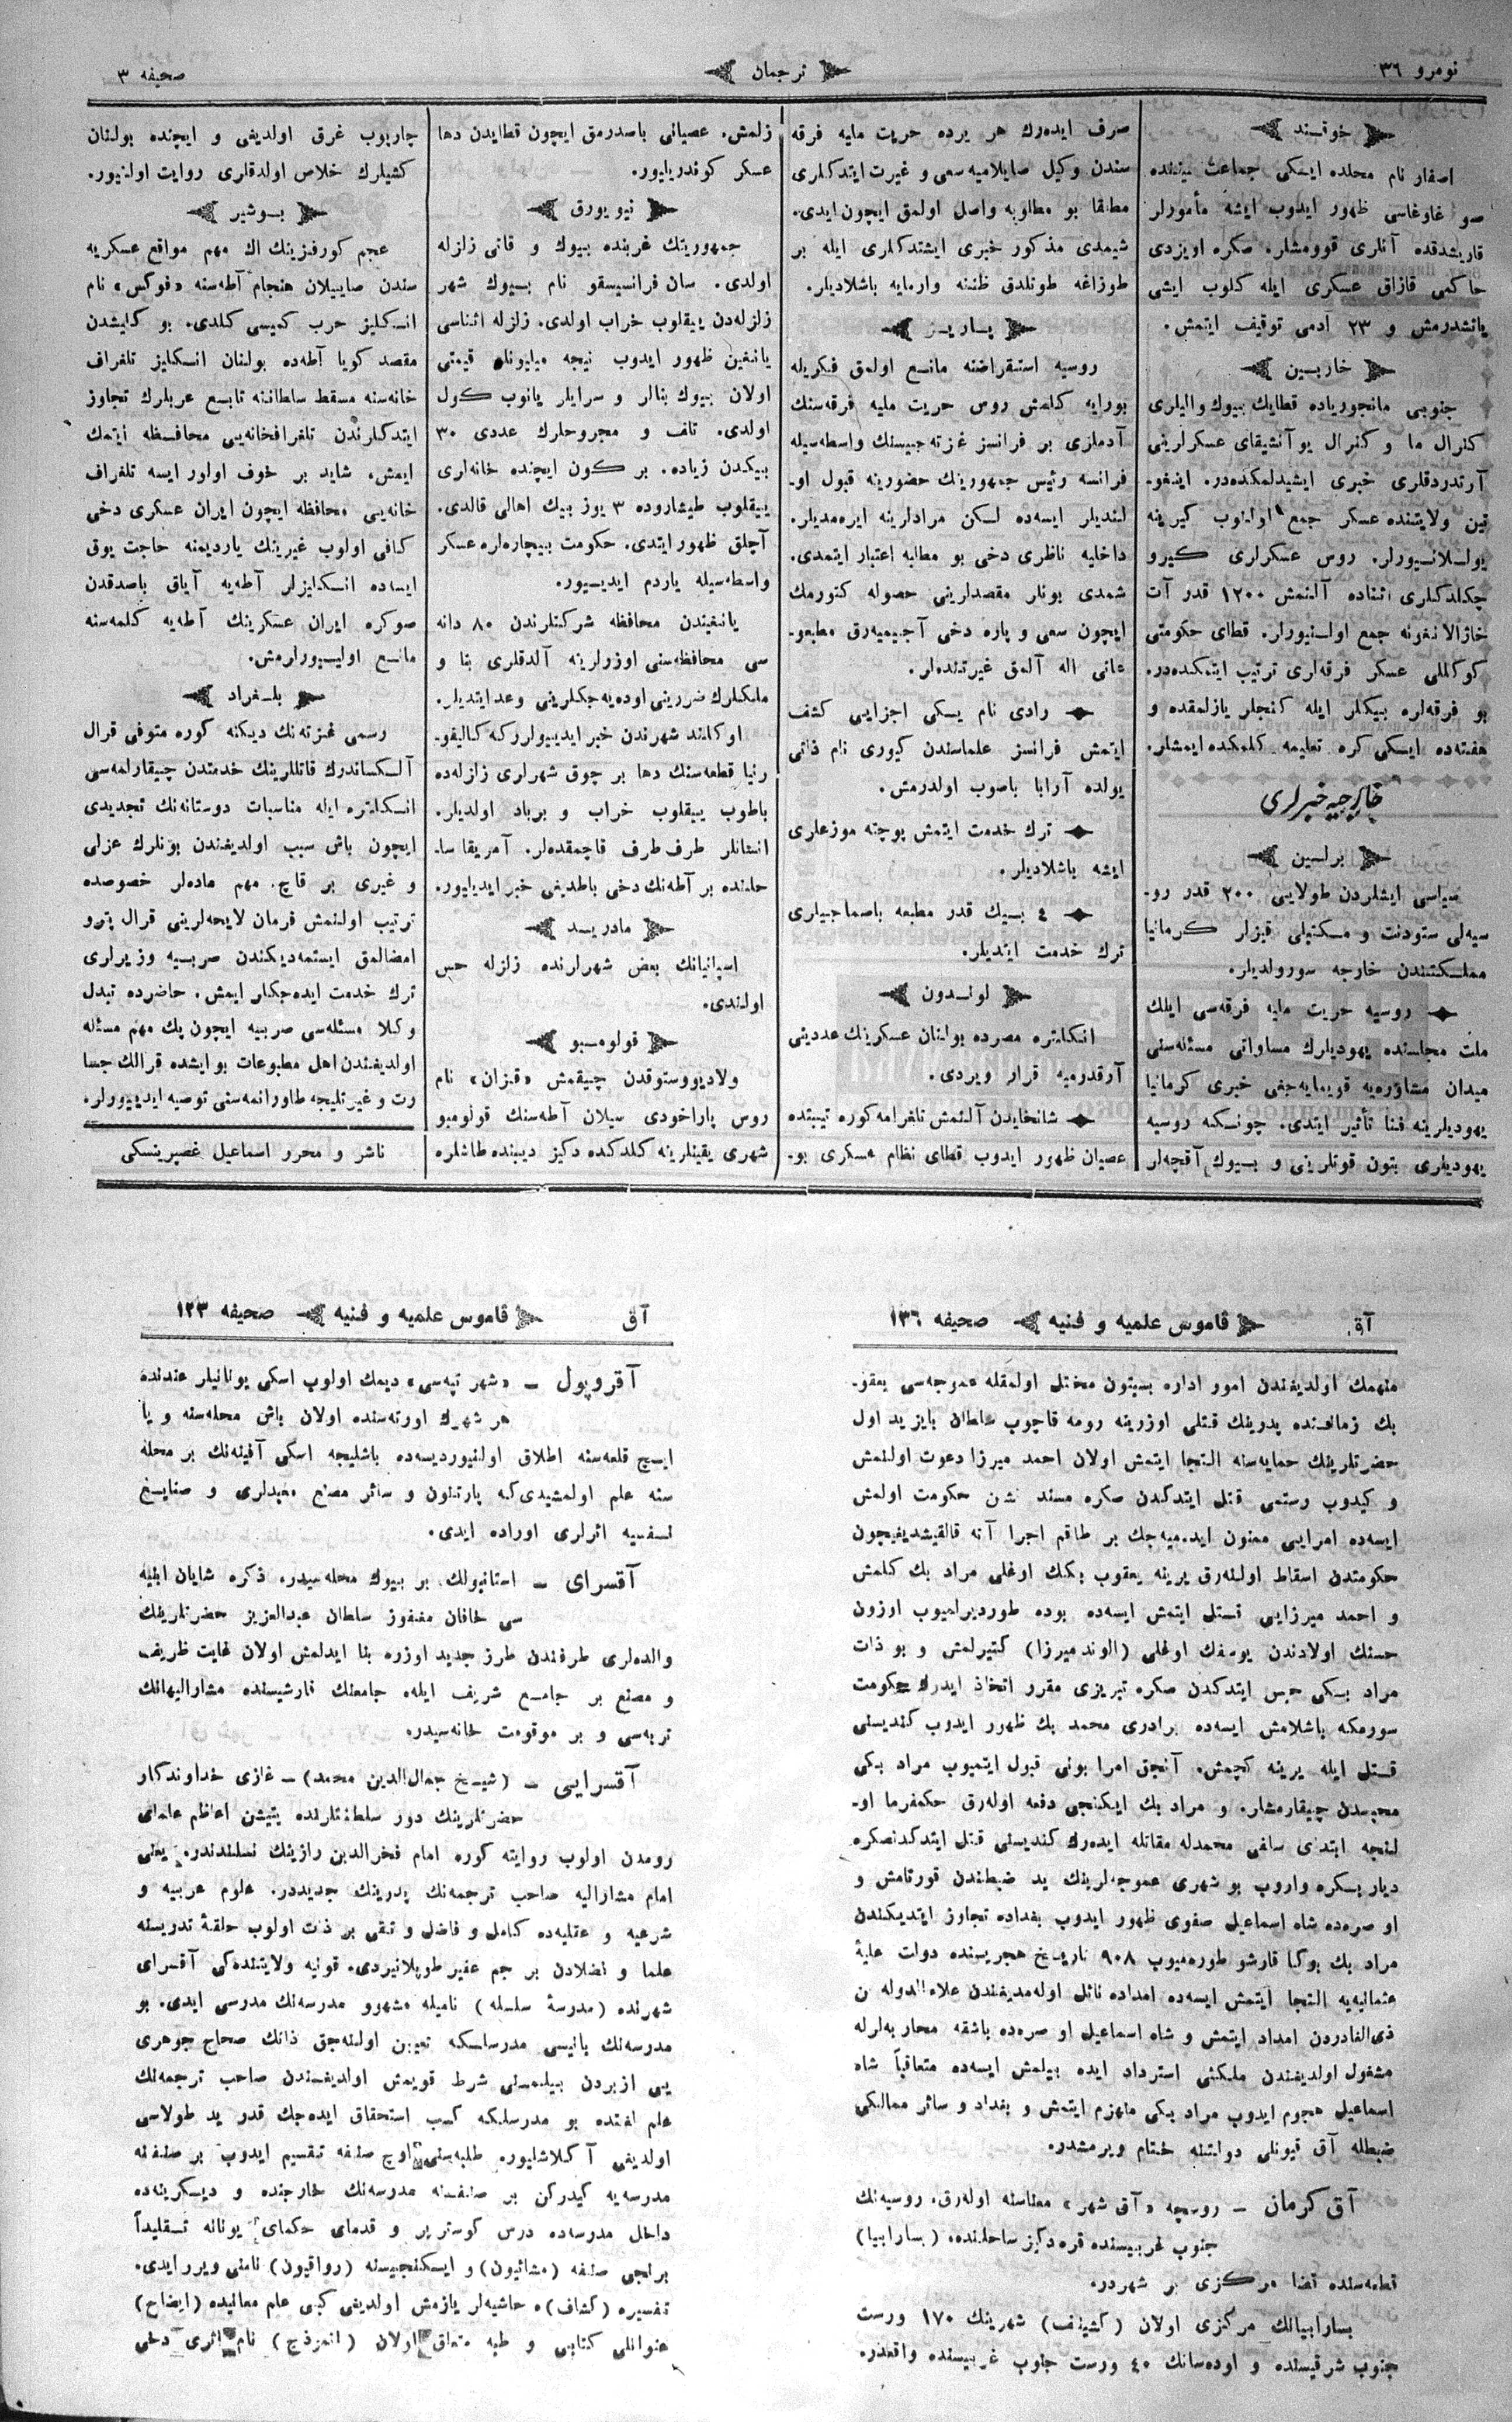 نومرو ٣٦
ترجمان
صحيفه ٣
خوقند
اصفار نام محلده ايسكى جماعت بيننده
صو غاوغاسى ظهور ايدوب ايشه مأمورلر
قاريشدقده آنلرى قوومشلر. صكره اويزدى
حاكمى قازاق عسكرى ايله كلوب ايشى
ياتشدرمش و ٢٣ آدمى توقيف ايتمش.
خاربين
جنوبى مانجورياده قطايك بيوك واليلرى
كنرال ما و كنرال يوآنشيقاى عسكرلرينى
آرتدردقلرى خبرى ايشيدلمكده‌در. اينغو-
تين ولايتنده عسكر جمع اولنوب كيرينه
يوللانيورلر. روس عسكرلرى كيرو
چكلدكلرى اثناده آلنمش ١٢٠٠ قدر آت
خاژالانغونه جمع اولنيورلر. قطاى حكومتى
كوكللى عسكر فرقه‌لرى ترتيب ايتمكده‌در.
بو فرقه‌لره بيكلر ايله كنجلر يازلمقده و
هفته‌ده ايسكى كره تعليمه كلمكده ايمشلر.
خارجيه خبرلرى
برلسين
سياسى ايشلردن طولايى ٢٠٠ قدر رو-
سيه‌لى ستودنت و مكتبلى قيزلر كرمانيا
مملكتندن خارجه سورولديلر.
روسيه حريت مليه فرقه‌سى ايلك
ملت مجلسنده يهوديلرك مساواتى مسئله‌سنى
ميدان مشاوره‌يه قويمايه‌جغى خبرى كرمانيا
يهوديلرينه فنا تأثير ايتدى. چونكه روسيه
يهوديلرى بتون قوتلرينى و بيوك آقچه‌لر
صرف ايده‌رك هر يرده حريت مليه فرقه
سندن وكيل صايلاميه سعى و غيرت ايتدكلرى
مطلقا بو مطلوبه واصل اولمق ايچون ايدى.
شيمدى مذكور خبرى ايشتدكلرى ايله بر
طوزاغه طوتلدق ظننه وارمايه باشلاديلر.
پاريز
روسيه استقراضنه مانع اولمق فكريله
بورايه كلمش روس حريت مليه فرقه‌سنك
آدملرى بر فرانسز غزته‌جيسنك واسطه‌سيله
فرانسه رئيس جمهورينك حضورينه قبول او-
لنديلر ايسه‌ده لكن مرادلرينه ايره‌مديلر.
داخليه ناظرى دخى بو مطالبه اعتبار ايتمدى.
شمدى بونلر مقصدلرينى حصوله كتورمك
ايچون سعى و پاره دخى آجيميه‌رق مطبعو-
عاتى اله آلمق غيرتنده‌لر.
رادى نام يسكى اجزايى كشف
ايتمش فرانسز علماسندن كيورى نام ذاتى
يولده آرابا باصوب اولدرمش.
ترك خدمت ايتمش پوچته موزعلرى
ايشه باشلاديلر.
٤ بيك قدر مطبعه باصماجيلرى
ترك خدمت ايتديلر.
لوندون
انكلتره مصرده بولنان عسكرينك عددينى
آرقدرميه قرار ويردى.
شانخايدن آلنمش تلغرامه كوره تيبتده
عصيان ظهور ايدوب قطاى نظام عسكرى بو-
زلمش. عصيانى باصدرمق ايچون قطايدن دها
عسكر كوندريليور.
نيو يورق
جمهوريتك غربنده بيوك و قاتى زلزله
اولدى. سان فرانسيسقو نام بيوك شهر
زلزله‌دن ييقلوب خراب اولدى. زلزله اثناسى
يانغين ظهور ايدوب نيجه ميليونلر قيمتى
اولان بيوك بنالر و سرايلر يانوب كول
اولدى. تلف و مجروحلرك عددى ٣٠
بيكدن زياده. بر كون ايچنده خانه‌لرى
ييقلوب طيشاروده ٣ يوز بيك اهالى قالدى.
آچلق ظهور ايتدى. حكومت بيچاره‌لره عسكر
واسطه‌سيله ياردم ايديسيور.
يانغيندن محافظه شركتلرندن ٨٠ دانه
سى محافظه‌سنى اوزرلرينه آلدقلرى بنا و
ملكلرك ضررينى اوده‌يه‌جكلرينى وعد ايتديلر.
اوكلند شهرندن خبر ايدييورلركه كاليفو-
رنيا قطعه‌سنك دها بر چوق شهرلرى زلزله‌ده
باطوب ييقلوب خراب و برباد اولديلر.
انسانلر طرف طرف قاچمقده‌لر. آمريقا سا-
حلنده بر آطه‌نك دخى باطديغى خبر ايديليور.
مادريد
اسپانيانك بعض شهرلرنده زلزله حس
اولندى.
قولومبو
ولاديووستوقدن چيقمش «قيزان» نام
روس پاراخودى سيلان آطه‌سنك قولومبو
شهرى يقينلرينه كلدكده دكيز ديبنده طاشلره
چارپوب غرق اولديغى و ايچنده بولنان
كشيلرك خلاص اولدقلرى روايت اولنيور.
بوشير
عجم كورفزينك اك مهم مواقع عسكريه
سندن صاييلان هنجام آطه‌سنه «فوكس» نام
انكليز حرب كميسى كلدى. بو كليشدن
مقصد كويا آطه‌ده بولنان انكليز تلغراف
خانه‌سنه مسقط سلطاننه تابع عربلرك تجاوز
ايتدكلرندن تلغرافخانه‌يى محافظه ايتمك
ايمش. شايد بر خوف اولور ايسه تلغراف
خانه‌يى محافظه ايچون ايران عسكرى دخى
كافى اولوب غيرينك يارديمنه حاجت يوق
ايسه‌ده انكليزلر آطه‌يه آياق باصدقدن
صوكره ايران عسكرينك آطه‌يه كلمه‌سنه
مانع اوليورلرمش.
بلغراد
رسمى غزته‌نك ديكنه كوره متوفى قرال
آلكساندرك قاتللرينك خدمتدن چيقارلمه‌سى
انكلتره ايله مناسبات دوستانه‌نك تجديدى
ايچون باش سبب اولديغندن بونلرك عزلى
و غيرى بر قاچ مهم ماده‌لر خصوصده
ترتيب اولنمش فرمان لايحه‌لرينى قرال پترو
امضالمق ايستمه‌ديكندن صربيه وزيرلرى
ترك خدمت ايده‌جكلر ايمش. حاضرده تبدل
وكلا مسئله‌سى صربيه ايچون پك مهم مسئله
اولديغندن اهل مطبوعات بو ايشده قرالك جسا
رت و غيرتليجه طاورانمه‌سنى توصيه ايدييورلر.
ناشر و محرر اسماعيل غصپرينسكى
آق
قاموس علميه و فنيه
صحيفه ١٣٦
منهمك اولديغندن امور اداره بسبتون مختل اولمقله عموجه‌سى يعقو-
بك زماننده پدرينك قتلى اوزرينه رومه قاچوب سلطان بايزيد اول
حضرتلرينك حمايه‌سنه التجا ايتمش اولان احمد ميرزا دعوت اولنمش
و كيدوب رستمى قتل ايتدكدن صكره مسند نشن حكومت اولمش
ايسه‌ده امرايى ممنون ايده‌ميه‌جك بر طاقم اجرا آته قالقيشديغيچون
حكومتدن اسقاط اولنه‌رق يرينه يعقوب بكك اوغلى مراد بك كلمش
و احمد ميرزايى قتل ايتمش ايسه‌ده بوده طورديرلميوب اوزون
حسنك اولادندن يوسفك اوغلى (الوند ميرزا) كتيرلمش و بو ذات
مراد بكى حبس ايتدكدن صكره تبريزى مقرر اتخاذ ايدرك حكومت
سورمكه باشلامش ايسه‌ده برادرى محمد بك ظهور ايدوب كنديسنى
قتل ايله يرينه كچمش. آنجق امرا بونى قبول ايتميوب مراد بكى
محبسدن چيقارمشلر. و مراد بك ايكنجى دفعه اوله‌رق حكمفرما او-
لنجه ابتدى سالفى محمدله مقاتله ايده‌رك كنديسنى قتل ايتدكدنصكره
دياربكره واروب بو شهرى عموجه‌لرينك يد ضبطندن قورتامش و
او صره‌ده شاه اسماعيل صفوى ظهور ايدوب بغداده تجاوز ايتديكندن
مراد بك بوكا قارشو طوره‌ميوب ٩٠٨ تاريخ هجريسنده دولت عليۀ
عثمانيه‌يه التجا ايتمش ايسه‌ده امداده نائل اوله‌مديغندن علاء الدوله بن
ذى الغادردن امداد ايتمش و شاه اسماعيل او صره‌ده باشقه محاربه‌لرله
مشغول اولديغندن ملكنى استرداد ايده بيلمش ايسه‌ده متعاقباً شاه
اسماعيل هجوم ايدوب مراد بكى منهزم ايتمش و بغداد و سائر ممالكى
ضبطله آق قيونلى دولتنه ختام ويرمشدر.
آق كرمان ــ روسچه «آق شهر» معناسنه اوله‌رق. روسيه‌نك
جنوب غربيسنده قره دكيز ساحلنده. (بسارابيا)
قطعه‌سنده قضا مركزى بر شهردر.
بسارابيالك مركزى اولان (كشينف) شهرينك ١٧٠ ورست
جنوب شرقيسنده و اوده‌سانك ٤٠ ورست جنوب غربيسنده واقعدر.
آق
قاموس علميه و فنيه
صحيفه ١٢٣
آقروپول ــ «شهر تپه‌سى» ديمك اولوب اسكى يونانيلر عندنده
هر شهرك اورته‌سنده اولان باش محله‌سنه و يا
ايچ قلعه‌سنه اطلاق اولنيورديسه‌ده باشليجه اسكى آفينه‌نك بر محله
سنه علم اولمشيدى‌كه پارتنون و سائر مصنع معبدلرى و صنايع
نفيسه اثرلرى اوراده ايدى.
آقسراى ــ استانبولك بر بيوك محله‌سيدر. ذكره شايان ابنيه
سى خاقان مغفور سلطان عبدالعزيز حضرتلرينك
والده‌لرى طرفندن طرز جديد اوزره بنا ايدلمش اولان غايت ظريف
و مصنع بر جامع شريف ايله. جامعنك قارشيسنده مشاراليهانك
تربه‌سى و بر موقوت خانه‌سيدر.
آقسرايى ــ (شيخ جمال الدين محمد) ــ غازى خداوندكار
حضرتلرينك دور سلطنتلرنده يتيشن اعاظم علماى
رومدن اولوب روايته كوره امام فخر الدين رازينك نسلندندر. يعنى
امام مشاراليه صاحب ترجمه‌نك پدرينك جديدر. علوم عربيه و
شرعيه و عقليه‌ده كامل و فاضل و تقى بر ذات اولوب حلقۀ تدريسنه
علما و فضلادن بر جم غفير طوپلانيردى. قونيه ولايتنده‌كى آقسراى
شهرنده (مدرسۀ سلسله) ناميله مشهور مدرسه‌نك مدرسى ايدى. بو
مدرسه‌نك بانيسى مدرسلكه تعيين اولنه‌جق ذاتك صحاح جوهرى
يى ازبردن بيلمسنى شرط قويمش اولديغندن صاحب ترجمه‌نك
علم لغتده بو مدرسلكه كسب استحقاق ايده‌جك قدر يد طولاسى
اولديغى آكلاشليور. طلبه‌سنى اوچ صنفه تقسيم ايدوب بر صنفنه
مدرسه‌يه كيدركن بر صنفنه مدرسه‌نك خارجنده و ديكرينه‌ده
داخل مدرسه‌ده درس كوسترير و قدماى حكماى يونانه تقليداً
برنجى صنفه (مشائيون) و ايكنجيسنه (رواقيون) نامنى ويررايدى.
تفسيره (كشاف)ه حاشيه‌لر يازمش اولديغى كبى علم معانيده (ايضاح)
عنوانلى كتابى و طبه متعلق اولان (انمزذج) نام اثرى دخى